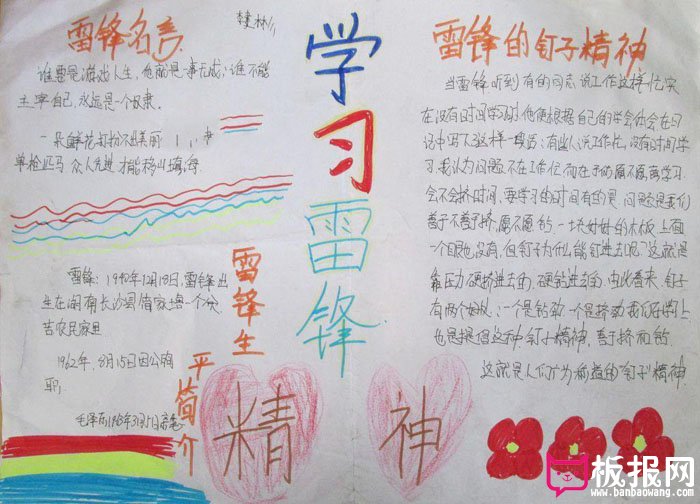 雷锋名言
谁要是游戏人生，他就是一事无成，谁不能
主宰自己，永远是一个奴隶。
一朵鲜花打扮不出美丽
单枪匹马 众人先进才能移山填海
学习雷锋
精神
雷锋生
平简介
雷锋：1940年12月18日，雷锋出
生在湖南长沙县简家塘一个贫
苦农民家里
1962年，8月15日因公殉
职，
毛泽东1963年3月5日亲笔
雷锋的钉子精神
当雷锋听到有的同志说工作这样忙实
在没有时间学习时他便根据自己的学会体会在日
记中写下这样一段话：有些人说工作忙，没有时间学
习，我认为问题不在工作忙而在于你愿不愿意学习
会不会挤时间，要学习的时间有的是，问题是我们
善于不善于挤，愿不愿钻，一块好好的木板上面
一个眼也没有，但钉子为什么能钉进去呢？这就是
靠压力硬挤进去的，硬钻进去的，由此看来，钉子
有两个好处：一个是钻劲，一个是挤劲我们在学习上
也是提倡这种钉子精神，善于挤和钻
这就是人们广为称道的"钉子"精神
板报网
www.banbaowang.com